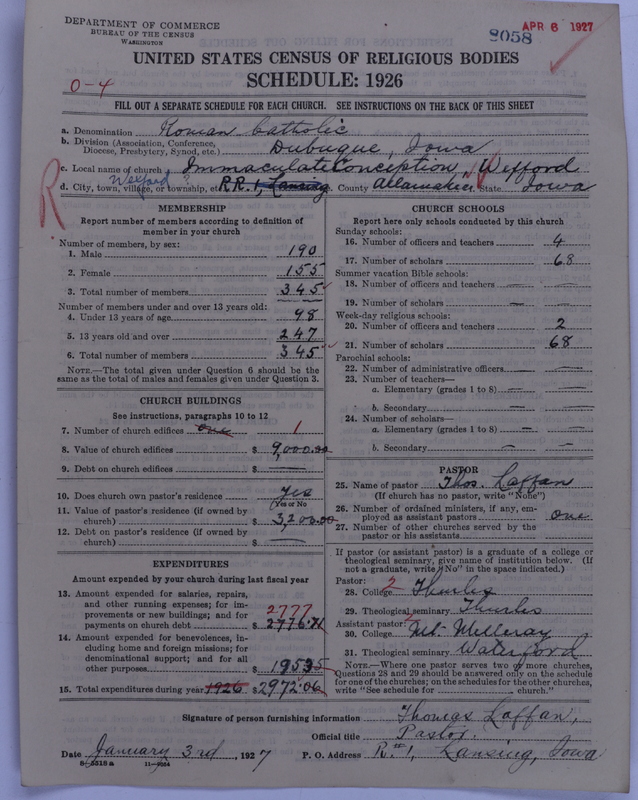 DEPARTMENT OF COMMERCE
BUREAU OF THE CENSUS
WASHINGTON
8058
APR 6 1927
UNITED STATES CENSUS OF RELIGIOUS BODIES
SCHEDULE: 1926
0-4
FILL OUT A SEPARATE SCHEDULE FOR EACH CHURCH. SEE INSTRUCTIONS ON THE BACK OF THIS SHEET
a. Denomination Roman Catholic
b. Division (Association, Conference, Diocese, Presbytery, Synod, etc.) Dubuque, Iowa
c. Local name of church Immaculate Conception, Wexford
d. City, town, village, or township, etc. Wexford R.R. 1, Lansing. County Allamakee State Iowa
R
MEMBERSHIP
Report number of members according to definition of
member in your church
Number of members, by sex:
1. Male 190
2. Female 155
3. Total number of members 345
Number of members under and over 13 years old:
4. Under 13 years of age 98
5. 13 years old and over 247
6. Total number of members 345
NOTE.—The total given under Question 6 should be
same as the total of males and females given under Question 3.
CHURCH BUILDINGS
See instructions, paragraphs 10 to 12
7. Number of church edifices one 1
8. Value of church edifices $ 9,000.00
9. Debt on church edifices $ —
10. Does church own pastor's residence Yes
(Yes or No)
11. Value of pastor's residence (if owned by
church) $ 3,200.00
12. Debt on pastor's residence (if owned by
church) $ —
EXPENDITURES
Amount expended by your church during last fiscal year
13. Amount expended for salaries, repairs,
and other running expenses; for im-
provements or new buildings; and for
payments on church debt $ 2777 2776.71
14. Amount expended for benevolences, in-
cluding home and foreign missions; for
denominational support; and for all
other purposes $ 195.35
15. Total expenditures during year 1926 $ 2972.06
CHURCH SCHOOLS
Report here only schools conducted by this church
Sunday schools:
16. Number of officers and teachers 4
17. Number of scholars 68
Summer vacation Bible schools:
18. Number of officers and teachers —
19. Number of scholars —
Week-day religious schools:
20. Number of officers and teachers 2
21. Number of scholars 68
Parochial schools:
22. Number of administrative officers —
23. Number of teachers—
a. Elementary (grades 1 to 8) —
b. Secondary —
24. Number of scholars—
a. Elementary (grades 1 to 8) —
b. Secondary —
PASTOR
25. Name of pastor Thos. Laffan
(If church has no pastor, write "None")
26. Number of ordained ministers, if any, em-
ployed as assistant pastors one
27. Number of other churches served by the
pastor or his assistants
If pastor (or assistant pastor) is a graduate of a college or
theological seminary, give name of institution below. (If
not a graduate, write "No" in the space indicated.)
Pastor: 2
28. College Thurles
29. Theological seminary Thurles
Assistant pastor:
30. College Mt. Melleray
31. Theological seminary Waterford
NOTE.—Where one pastor serves two or more churches,
Questions 28 and 29 should be answered only on the schedule
for one of the churches; on the schedules for the other churches,
write "See schedule for church."
Signature of person furnishing information Thomas Laffan,
Official title Pastor.
Date January 3rd, 1927 P. O. Address R. #1, Lansing, Iowa